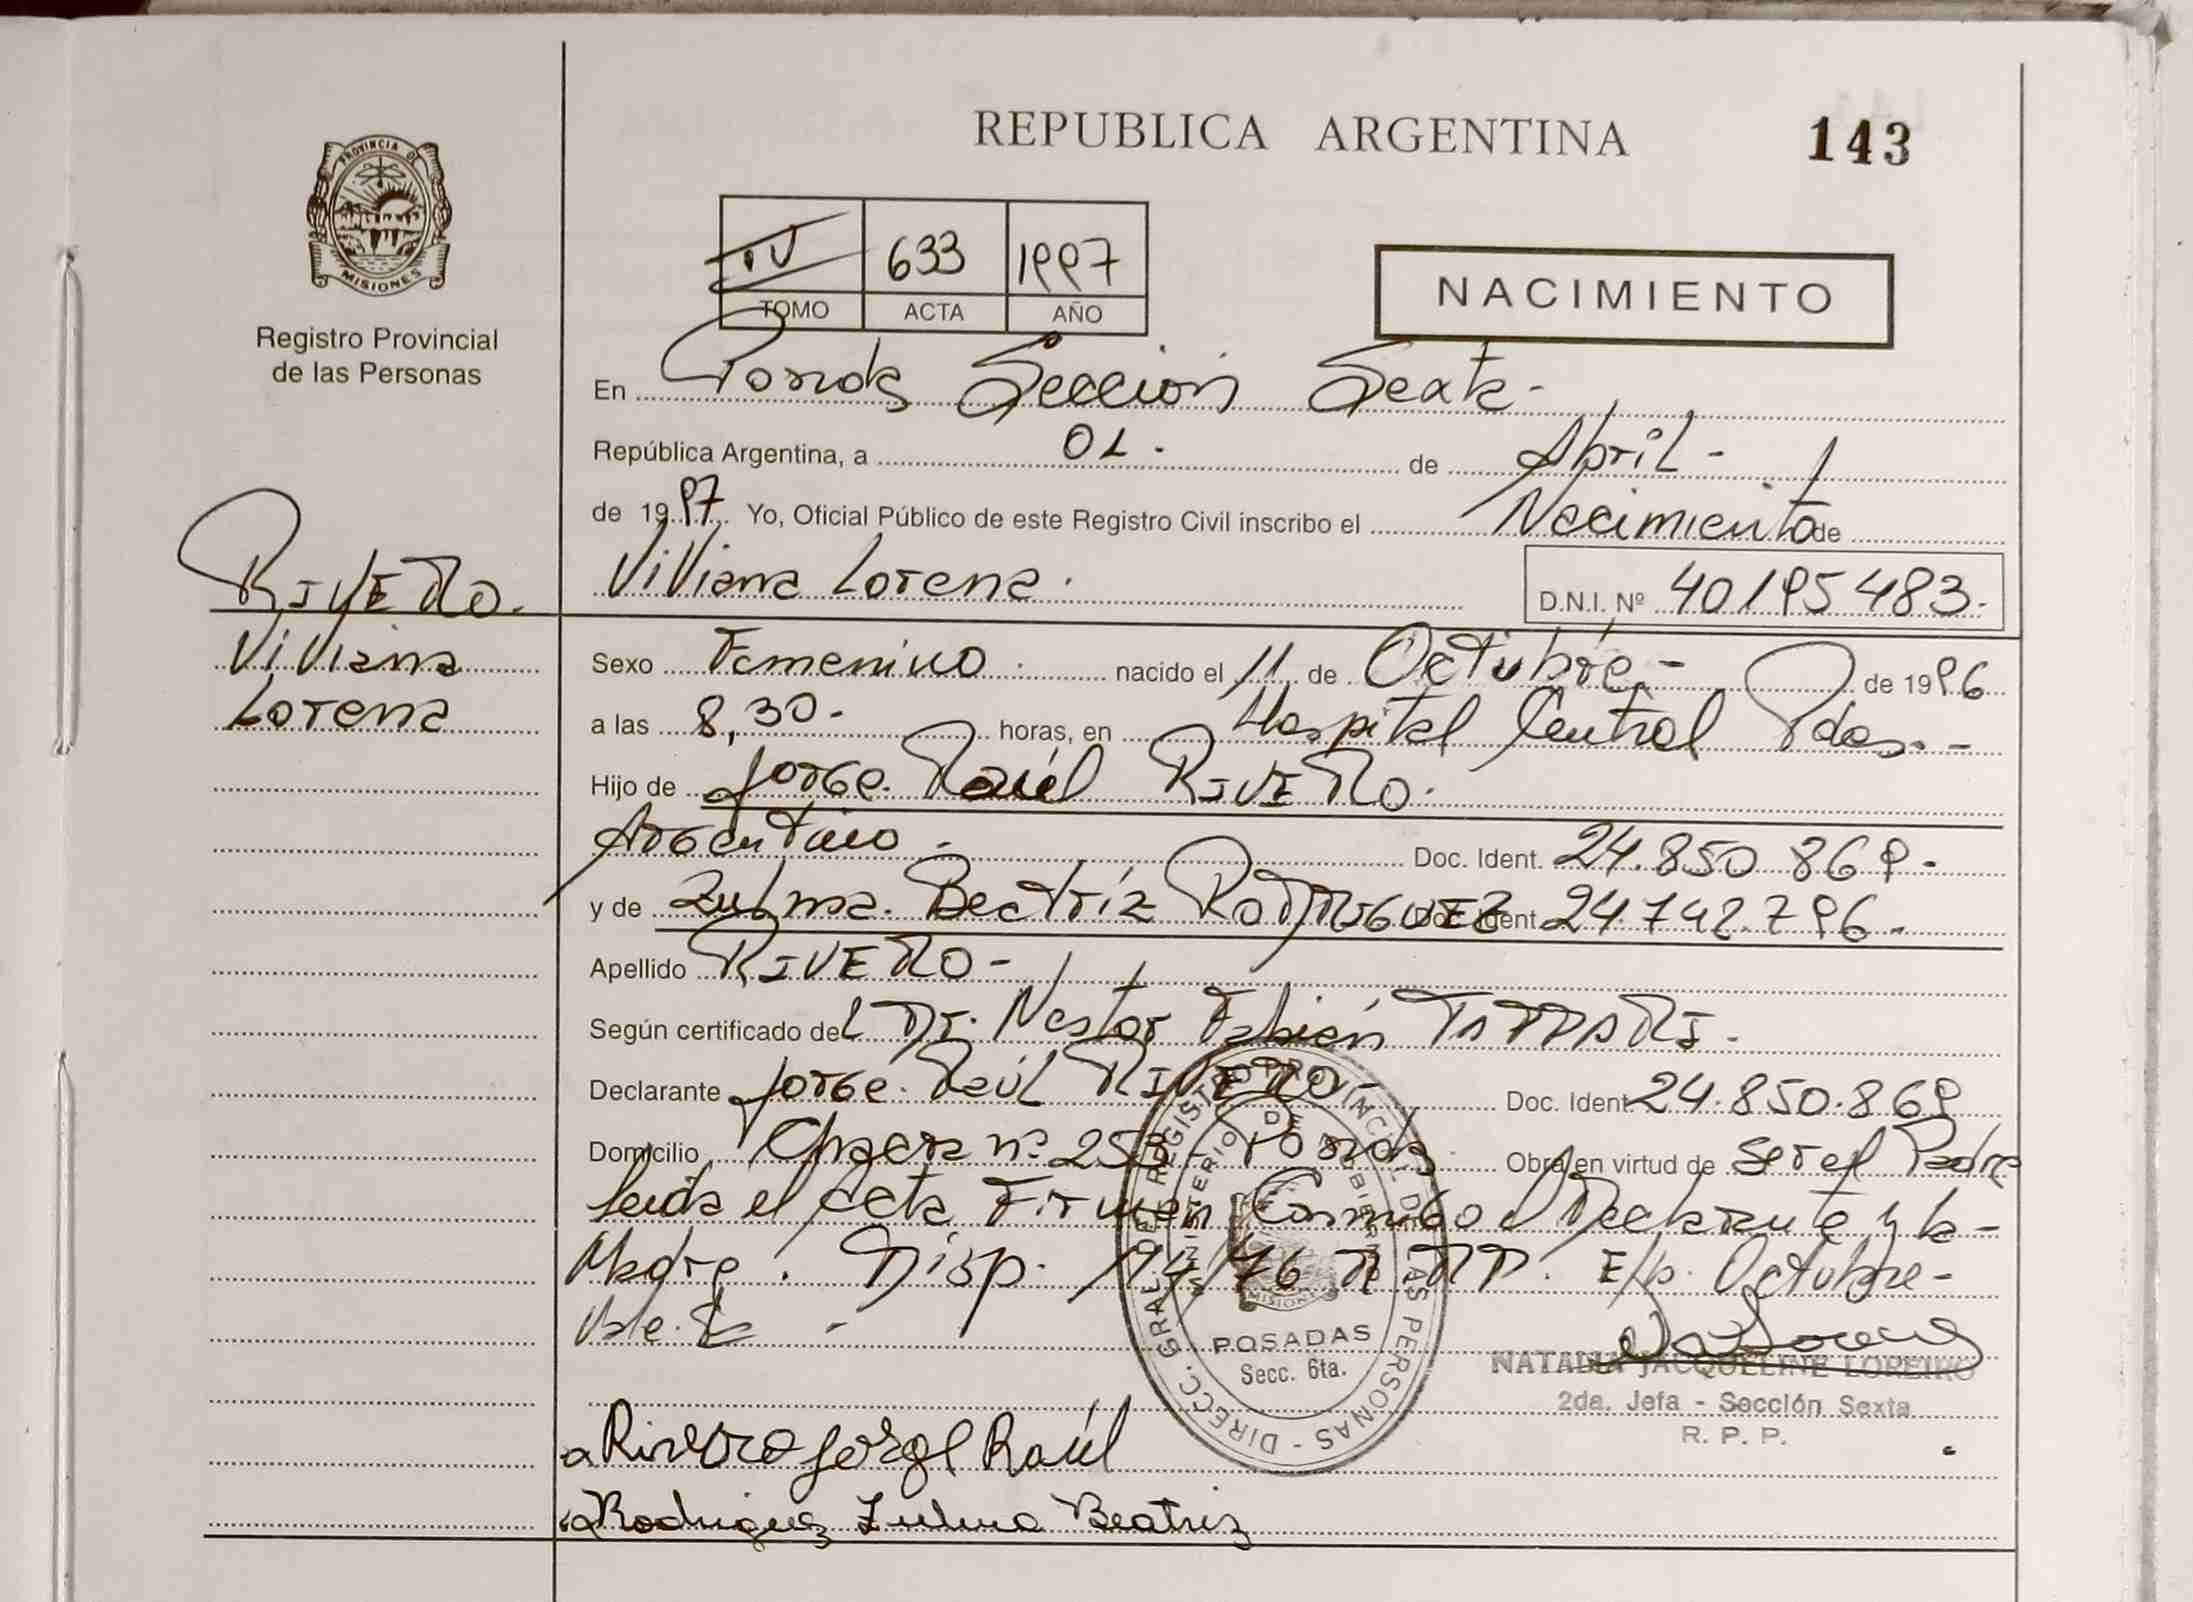 REPUBLICA ARGENTINA
143
PROVINCIA DE
MISIONES
Registro Provincial
de las Personas
IV 633 1997
TOMO ACTA AÑO
NACIMIENTO
En Posadas Sección Sexta-
República Argentina, a 01. de Abril-
de 1997 Yo, Oficial Público de este Registro Civil inscribo el Nacimiento de
RIVERO.
Viviana Lorena.
D.N.I. Nº 40195483.
Viviana
Lorena
Sexo Femenino. nacido el 11 de Octubre- de 1996
a las 8,30- horas, en Hospital Central Pdas.-
Hijo de Jorge Raúl RIVERO.
Argentino- Doc. Ident. 24.850.869-
y de Zulma Beatríz RODRIGUEZ Doc. Ident. 24.742.796-
Apellido RIVERO-
Según certificado del Dr. Nestor Fabián
Declarante Jorge Raúl RIVERO- Doc. Ident. 24.850.869
Domicilio Chacra nº 253 Posadas Obra en virtud de ser el Padre
Leída el Acta Firman Conmigo el Declarante y la-
Madre. Disp. 194/76 D. RP. E/p. Octubre-
Vale.
REGISTRO PROVINCIAL DE LAS PERSONAS - DIRECC. GRAL. DE
MINISTERIO DE GOBIERNO
MISIONES
POSADAS
Secc. 6ta.
NATALIA JACQUELINE LOREIRO
2da. Jefa - Sección Sexta
R. P. P.
Rivero Jorge Raúl
Rodriguez Zulma Beatriz